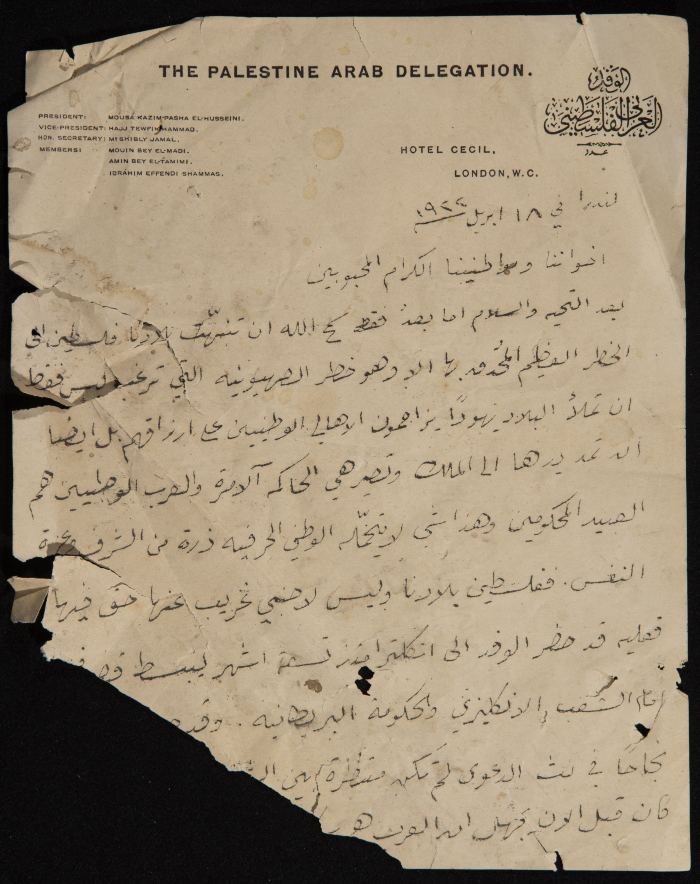 THE PALESTINE ARAB DELEGATION.
الوفد
العربي الفلسطيني
عدد
PRESIDENT: MOUSA KAZIM PASHA EL-HUSSEINI.
VICE-PRESIDENT: HAJJ TEWFIK HAMMAD.
HON. SECRETARY: MI SHIBLY JAMAL.
MEMBERS: MOUIN BEY EL-MADI.
AMIN BEY EL-TAMIMI.
IBRAHIM EFFENDI SHAMMAS.
HOTEL CECIL,
LONDON, W.C.
لندرا في ١٨ ابريل ١٩٢٢
اخواننا ومواطنينا الكرام المحبوبين
بعد التحية والسلام اما بعد فقد الله ان تنبهت بلادنا فلسطين الى
الخطر العظيم المحدق بها الا وهو خطر الصهيونية التي ترغب ليس فقط
ان تملأ البلاد يهودًا يزاحمون الاهالي الوطنيين على ارزاقهم بل ايضا
ان تمد يدها الى الملك وتصير هي الحاكمة الآمرة والعرب الوطنيين هم
العبيد المحكومين وهذا شي لا يتحمّله الوطني الحر فيه ذرة من الشرف وعزة
النفس. ففلسطين بلادنا وليس لاجنبي غريب عنها حق فيها
فعليه قد حضر الوفد الى انكلترا منذ تسعة اشهر ليبسط
امام الشعب الانكليزي والحكومة البريطانية. وقد
نجاحًا في بث الدعوى لم تكن منتظرة
كان قبل الان يجهل ان العرب